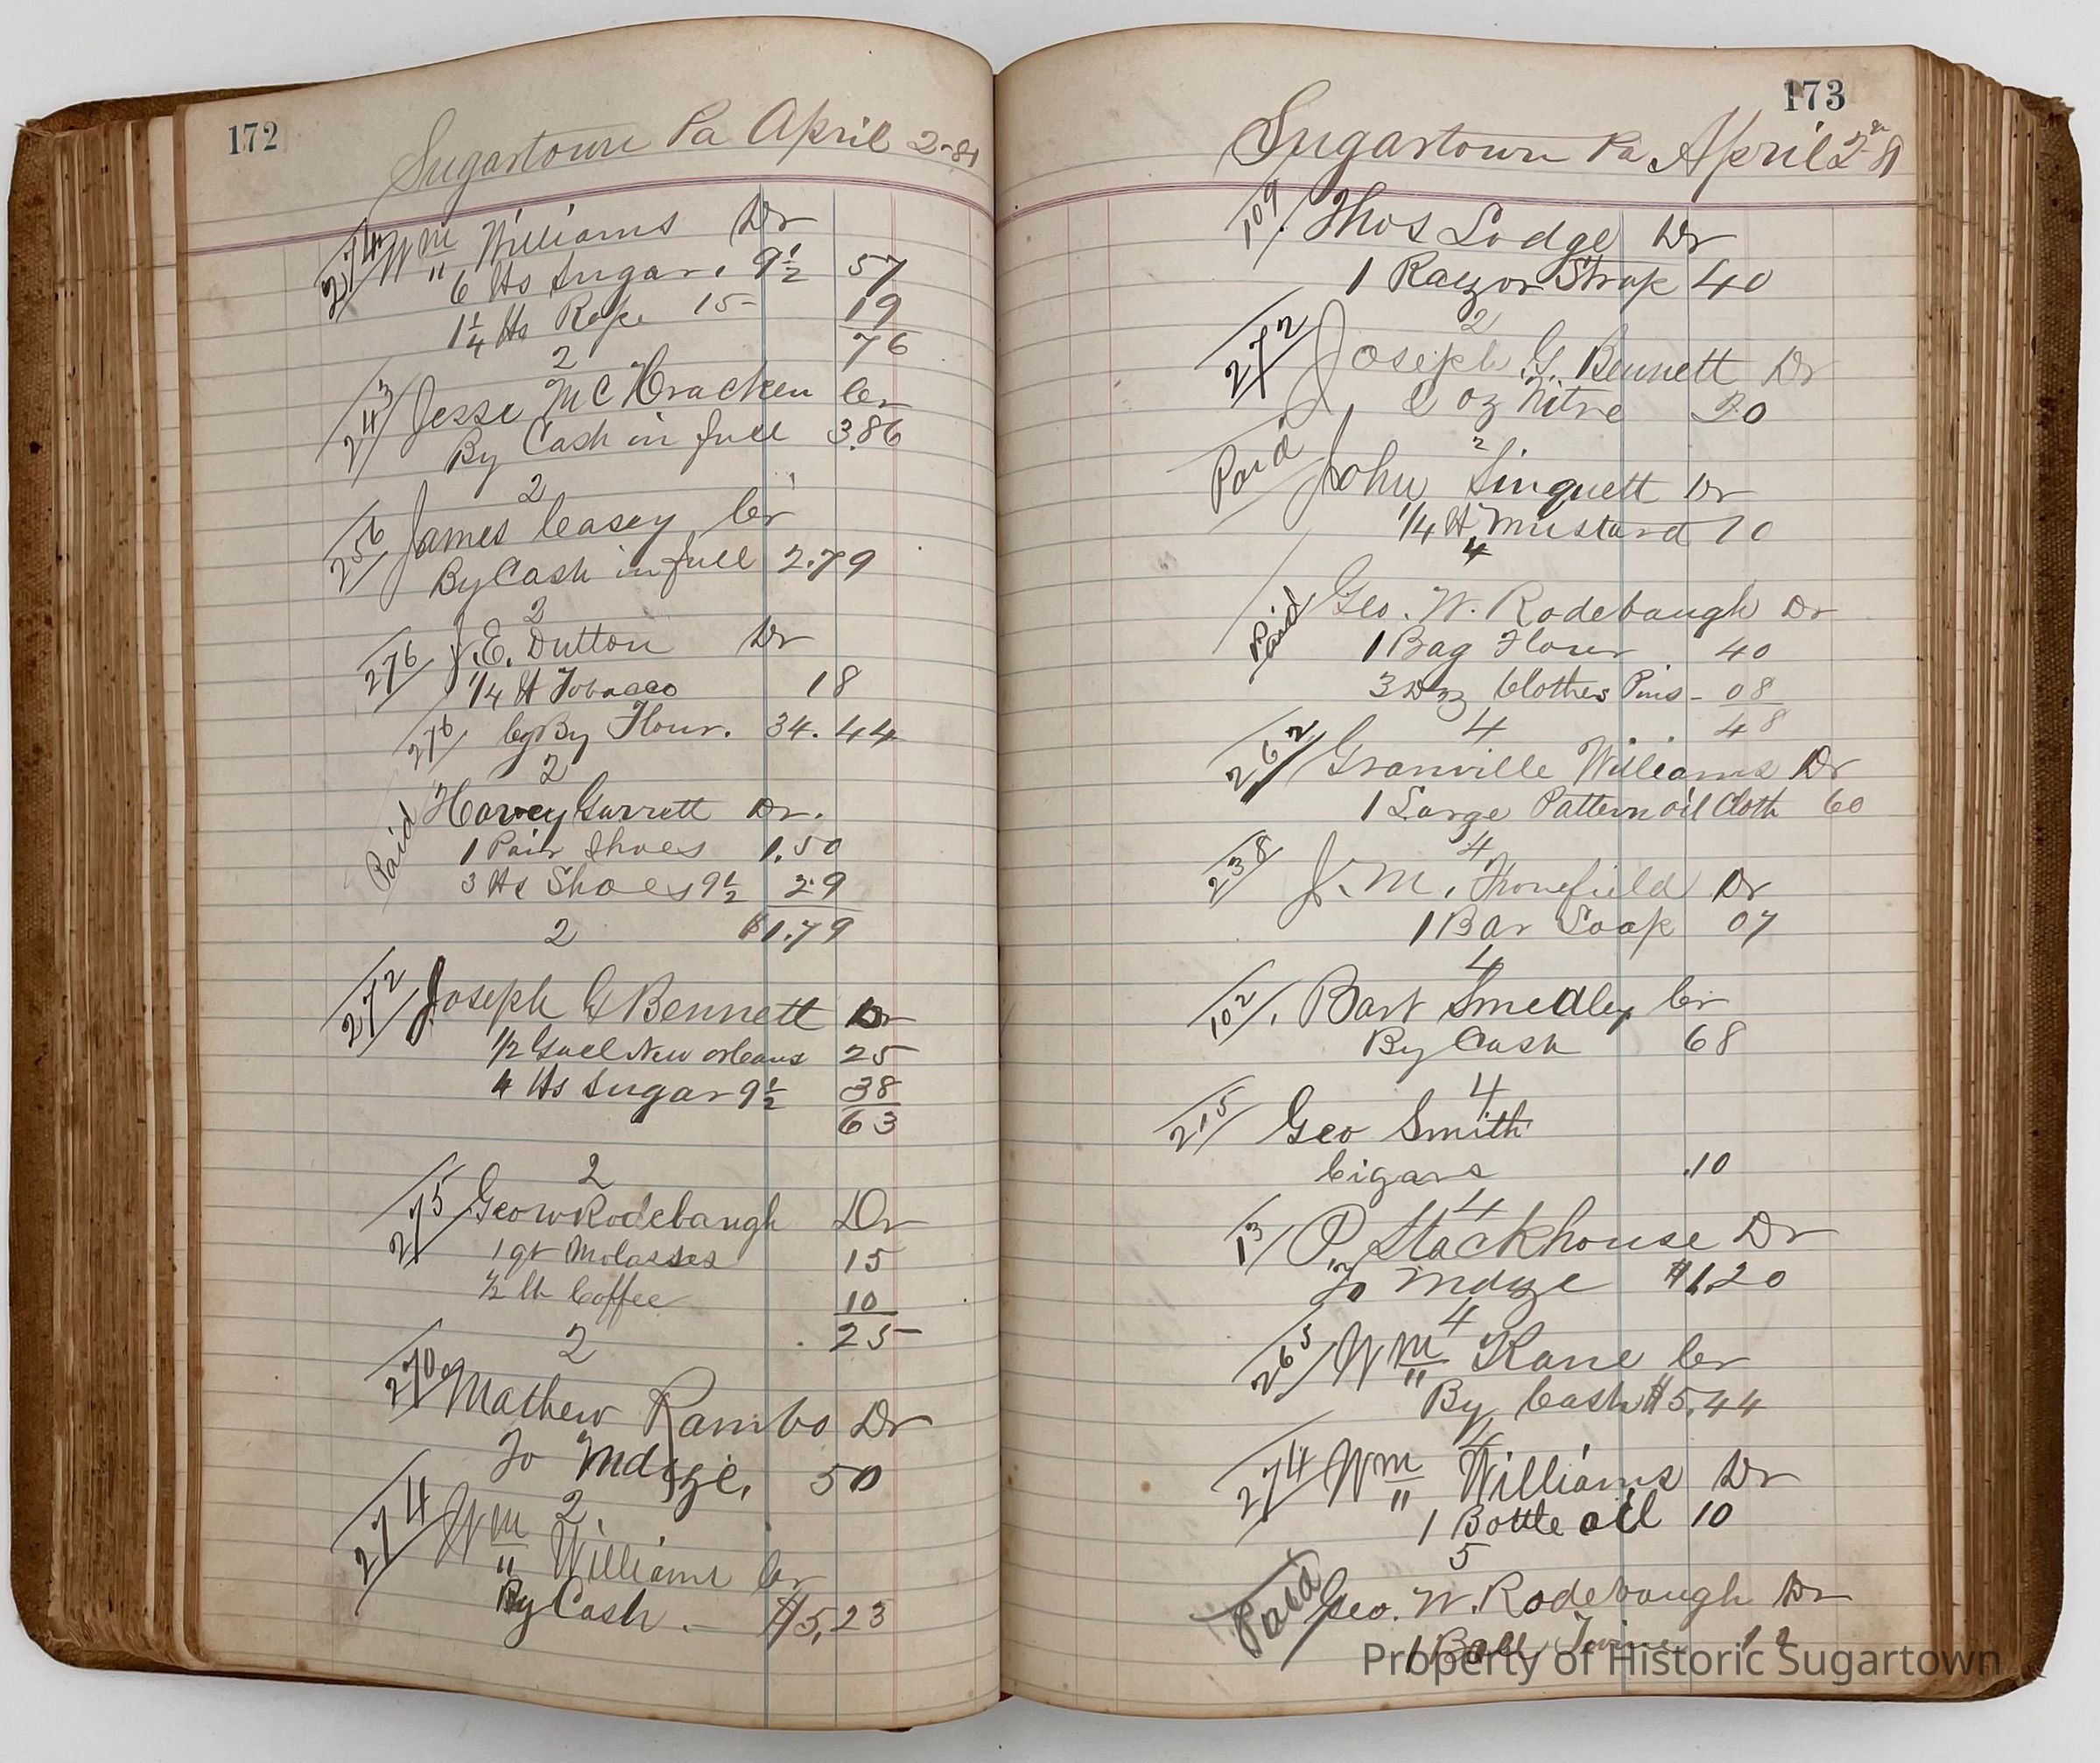 172
Sugartown Pa April 2-81
274 Wm Williams Dr
6 lbs Sugar. 9½ 57
1¼ lbs Rope 15 19
76
2
243 Jesse McCracken Cr
By Cash in full 3.86
2
256 James Casey Cr
By Cash in full 2.79
2
276 J.E. Dutton Dr
1/4 lb Tobacco 18
276 Cr By Flour. 34.44
2
Paid Harvey Garrett Dr.
1 Pair Shoes 1.50
3 lbs Shoes 9½ 29
2 $1.79
272 Joseph G Bennett Dr
1/2 Gall New orleans 25
4 lbs Sugar 9½ 38
63
2
275 Geo W Rodebaugh Dr
1 qt Molasses 15
½ lb Coffee 10
2 25
270 Mathew Rambo Dr
To Mdze. 50
2
274 Wm Williams Cr
By Cash. $5,23
173
Sugartown Pa April 2n 81
109 Thos Lodge Dr
1 Rayzor Strap 40
2
272 Joseph G. Bennett Dr
2 oz Nitre 20
2
Paid John Singuett Dr
1/4 lb Mustard 10
4
Paid Geo. W. Rodebaugh Dr
1 Bag Flour 40
3 Doz Clothes Pins - 08
4 48
262 Granville Williams Dr
1 Large Pattern oil Cloth 60
4
238 J. M. Thonefield Dr
1 Bar Soap 07
4
102 Bart Smedley Cr
By Cash 68
4
215 Geo Smith
Cigars .10
4
13 P. Stackhouse Dr
To Mdze $1.20
4
265 Wm Kane Cr
By Cash $5.44
4
274 Wm Williams Dr
1 Bottle oil 10
5
Paid Geo. W. Rodebaugh Dr
1 Ball Twine 12
Property of Historic Sugartown